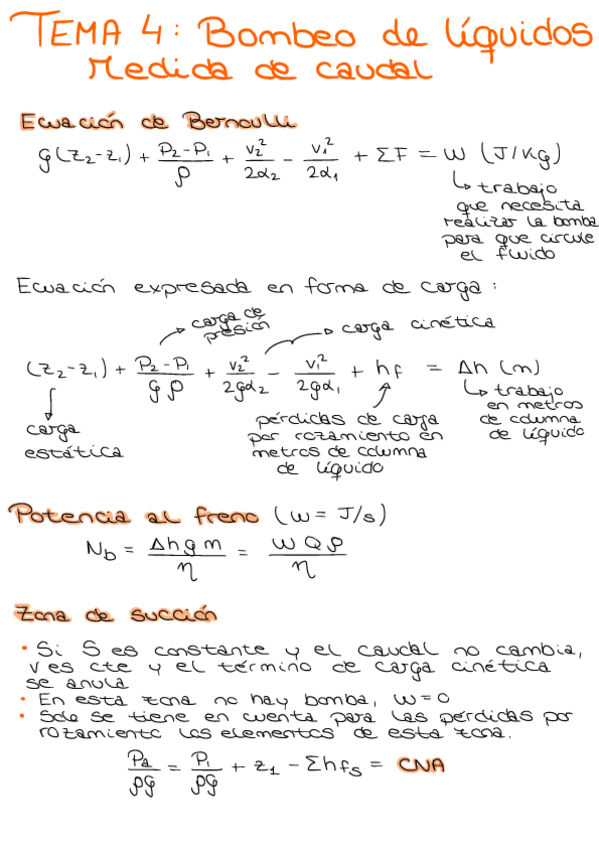 TEMA 4: Bombeo de líquidos
Medida de caudal
Ecuación de Bernoulli
g(z₂-z₁) + (P₂-P₁)/ρ + v₂²/2α₂ - v₁²/2α₁ + ΣF = W (J/Kg)
↳ trabajo
que necesita
realizar la bomba
para que circule
el fluido
Ecuación expresada en forma de carga:
carga de
presión
carga cinética
(z₂-z₁) + (P₂-P₁)/gρ + v₂²/2gα₂ - v₁²/2gα₁ + hf = Δh (m)
carga
estática
pérdidas de carga
por rozamiento en
metros de columna
de líquido
↳ trabajo
en metros
de columna
de líquido
Potencia al freno (W = J/s)
N_b = Δh g m/η = W Q ρ/η
Zona de succión
• Si S es constante y el caudal no cambia,
v es cte y el término de carga cinética
se anula
• En esta zona no hay bomba, W=0
• Solo se tiene en cuenta para las pérdidas por
rozamiento los elementos de esta zona.
Pa/ρg = P₁/ρg + z₁ - Σhfs = CNA